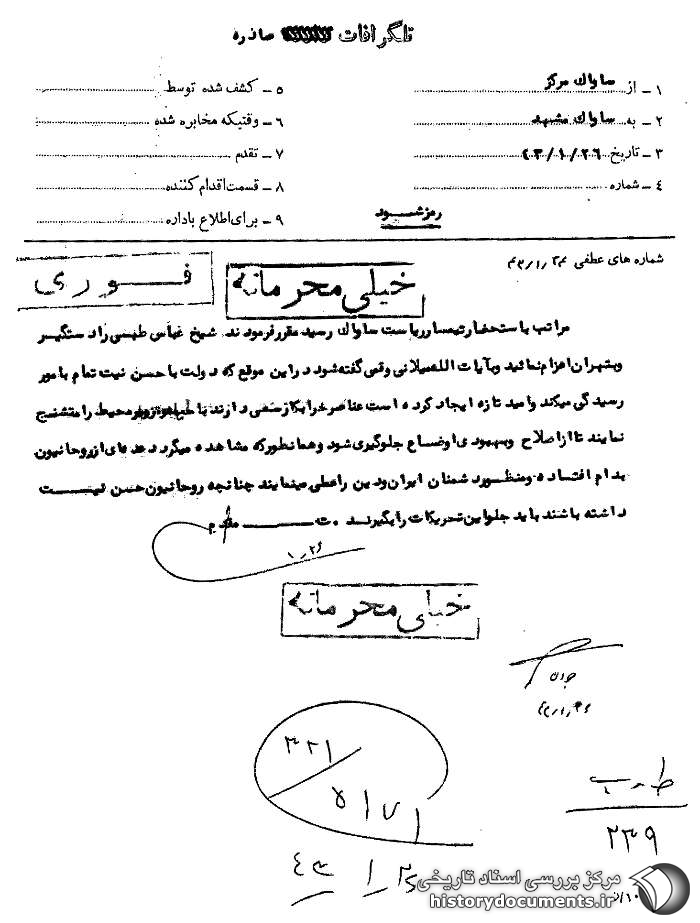 تلگرافات صادره
۱ – از ساواک مرکز
۲ – به ساواک مشهد
۳ – تاریخ ۴۳/۱/۲۶
۴ – شماره
۵ – کشف شده توسط
۶ – وقتیکه مخابره شده
۷ – تقدم
۸ – قسمت اقدام کننده
۹ – برای اطلاع باداره
رمز شود
شماره های عطفی ۴۳/۱/۲۴
خیلی محرمانه
فوری
مراتب باستحضار تیمسار ریاست ساواک رسید مقرر فرمودند. شیخ عباس طبسی را دستگیر
وبتهران اعزام نمائید وبآیات الله میلانی وقمی گفته شود در این موقع که دولت با حسن نیت تمام بامور
رسیدگی میکند وامید تازه ایجاد کرده است عناصر خرابکار سعی دارند با محیط را متشنج
نمایند تا از اصلاح وبهبودی اوضاع جلوگیری شود وهمانطور که مشاهده میگردد عده ای از روحانیون
بدام افتاده ومنظور دشمنان ایران ودین را عملی مینمایند چنانچه روحانیون حسن نیت
داشته باشند باید جلو این تحریکات را بگیرند. مقدم
۱/۲۶
خیلی محرمانه
۳۲۱
۵۱۷۱
۴۳/۱/۲۶
ط ب
۲۳۹
مرکز بررسی اسناد تاریخی
historydocuments.ir